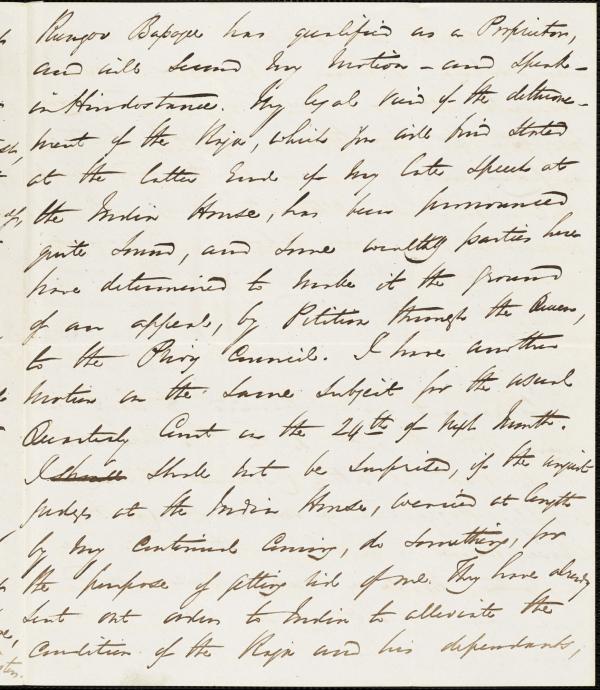 Rungoo Bapogee has qualified as a Proprietor,
and will second my motion – and speak –
in Hindostanee. My legal view of the dethrone-
ment of the Raja, which you will find stated
at the latter End of my late Speech at
the India House, has been pronounced
quite sound, and some wealthy parties here
have determined to make it the ground
of an appeal, by Petition through the Queen,
to the Privy Council. I have another
motion on the same subject for the usual
Quarterly Court on the 24th of next Month.
I shall not be surprised, if the unjust
judges at the India House, wearied at length
by my continual coming, do something, for
the purpose of getting rid of me. They have already
sent out orders to India to alleviate the
condition of the Raja and his dependants,